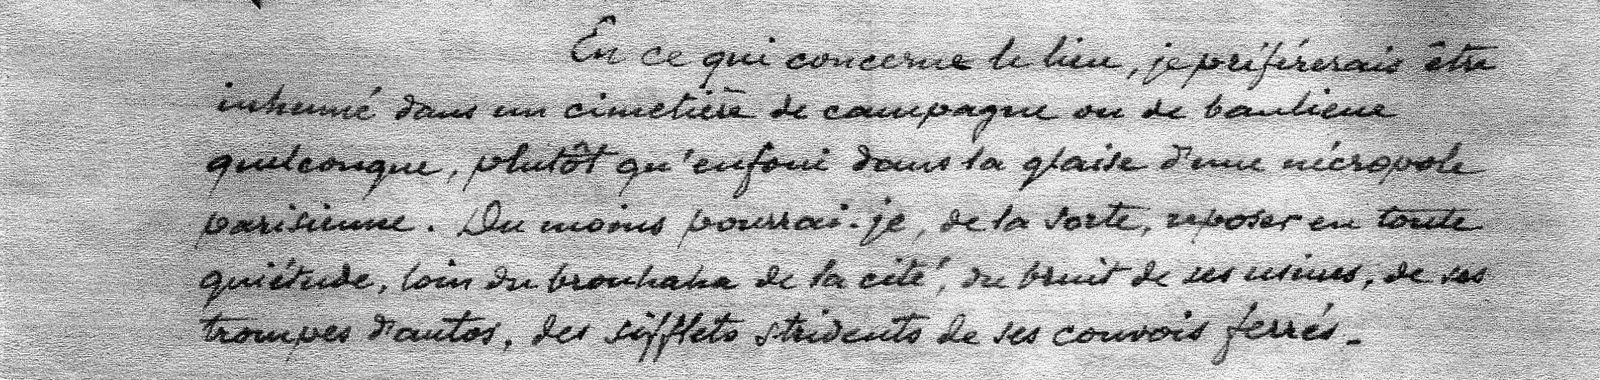 En ce qui concerne le lieu, je préférerais être
inhumé dans un cimetière de campagne ou de banlieue
quelconque, plutôt qu'enfoui dans la glaise d'une nécropole
parisienne. Du moins pourrai-je, de la sorte, reposer en toute
quiétude, loin du brouhaha de la cité, du bruit de ses usines, de ses
trompes d'autos, des sifflets stridents de ses convois ferrés.